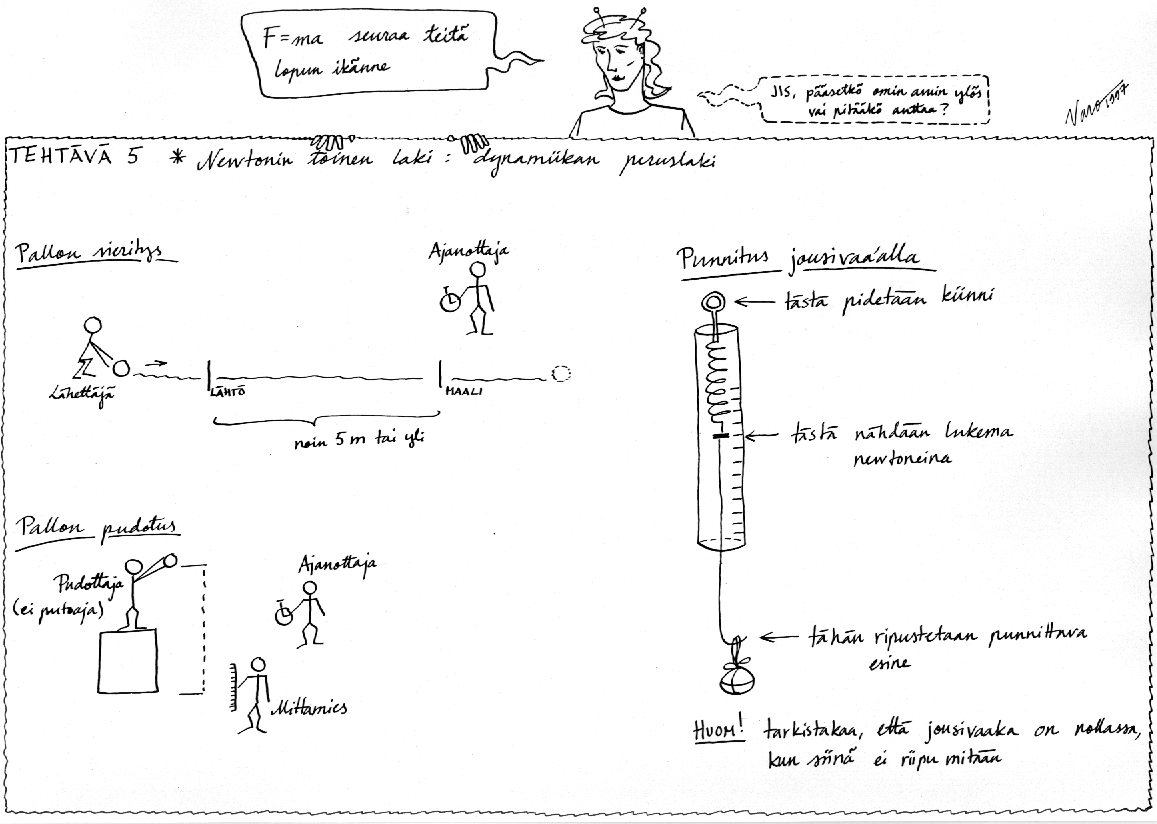 F=ma seuraa teitä
lopun ikänne
JIS, pääsetkö omin avuin ylös
vai pitääkö auttaa?
1997
TEHTÄVÄ 5 * Newtonin toinen laki : dynamiikan peruslaki
Pallon vieritys
Ajanottaja
Lähettäjä
LÄHTÖ
MAALI
noin 5 m tai yli
Pallon pudotus
Pudottaja
(ei putoaja)
Ajanottaja
Mittamies
Punnitus jousivaa'alla
tästä pidetään kiinni
tästä nähdään lukema
newtoneina
tähän ripustetaan punnittava
esine
HUOM! tarkistakaa, että jousivaaka on nollassa,
kun siinä ei riipu mitään